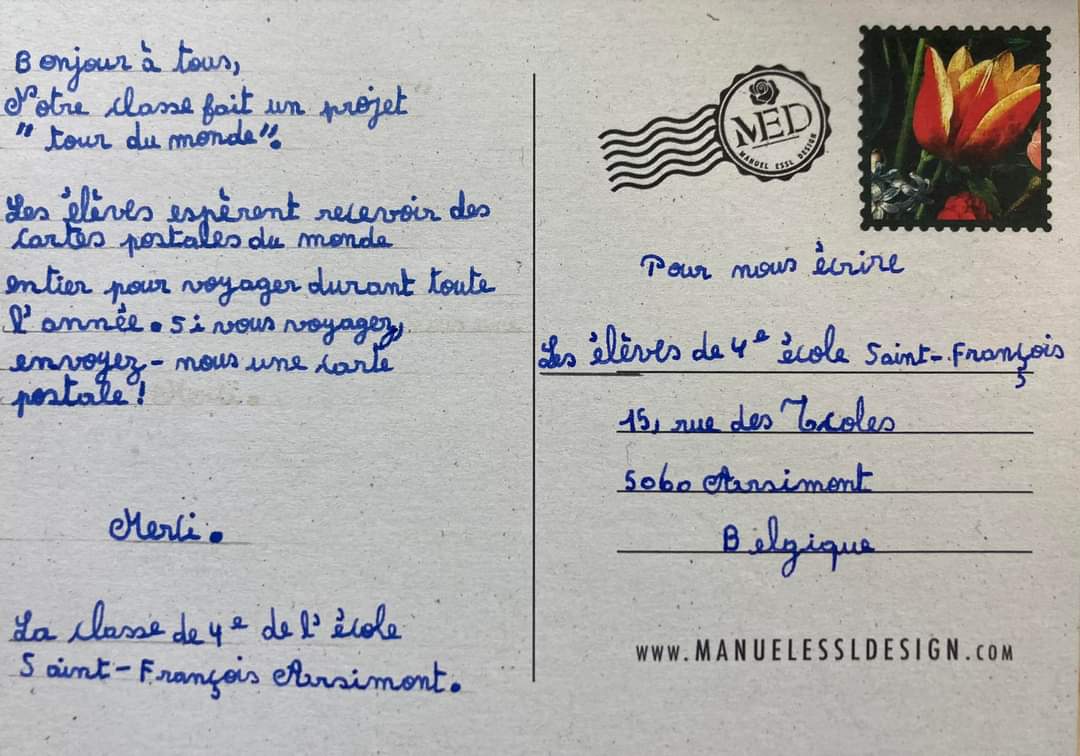 Bonjour à tous,
Notre classe fait un projet
" tour du monde".
Les élèves espèrent recevoir des
cartes postales du monde
entier pour voyager durant toute
l'année. Si vous voyagez,
envoyez-nous une carte
postale !
Merci.
La classe de 4e de l'école
Saint-François Arsimont.
MED
MANUEL ESSL DESIGN
Pour nous écrire
Les élèves de 4e école Saint-François
15, rue des Écoles
5060 Arsimont
Belgique
WWW.MANUELESSLDESIGN.COM